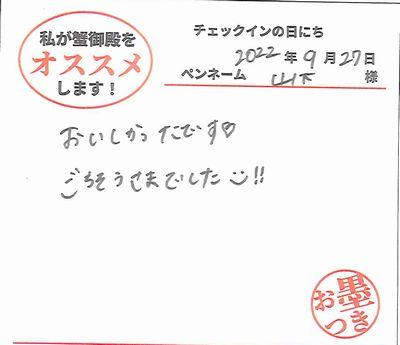 私が蟹御殿を
オススメ
します！
チェックインの日にち
2022年9月27日
ペンネーム 山下 様
おいしかったです♡
ごちそうさまでした☺!!
お墨つき